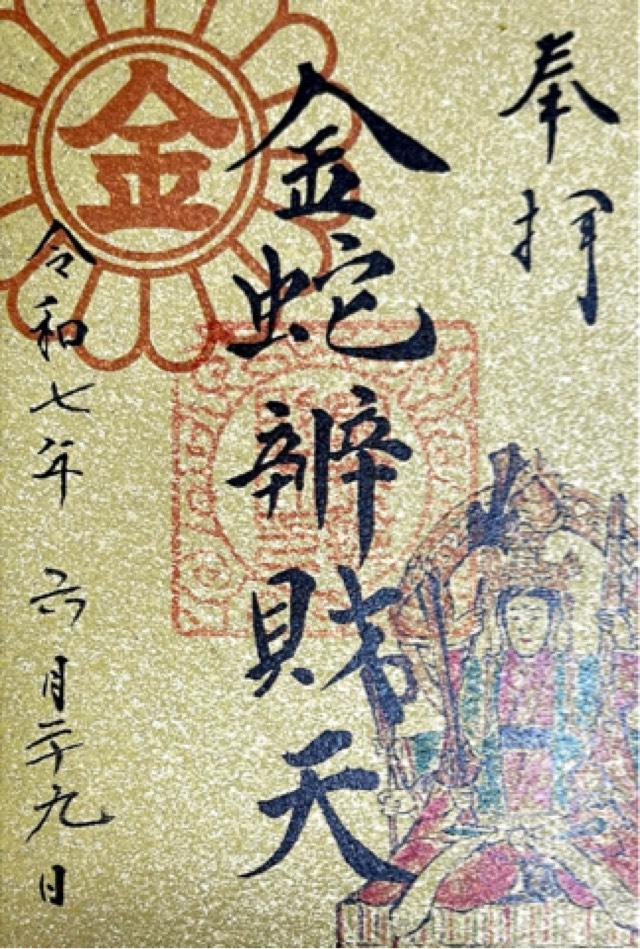 奉拝
金蛇辨財天
令和七年 六月二十九日
金